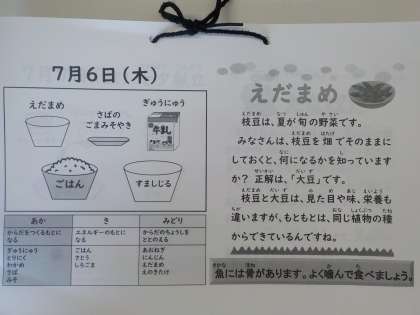 7月6日(木)
えだまめ
さばの
ごまみそやき
ぎゅうにゅう
牛乳
ごはん
すましじる
あか き みどり
からだをつくるもとに
なる
エネルギーのもとに
なる
からだのちょうしを
ととのえる
ぎゅうにゅう
とりにく
わかめ
さば
みそ
ごはん
さとう
しろごま
あおねぎ
にんじん
えだまめ
えのきたけ
えだまめ
枝豆は、夏が旬の野菜です。
みなさんは、枝豆を畑でそのままに
しておくと、何になるかを知っています
か? 正解は、「大豆」です。
枝豆と大豆は、見た目や味、栄養も
違いますが、もともとは、同じ植物の種
からできているんですね。
魚には骨があります。よく噛んで食べましょう。